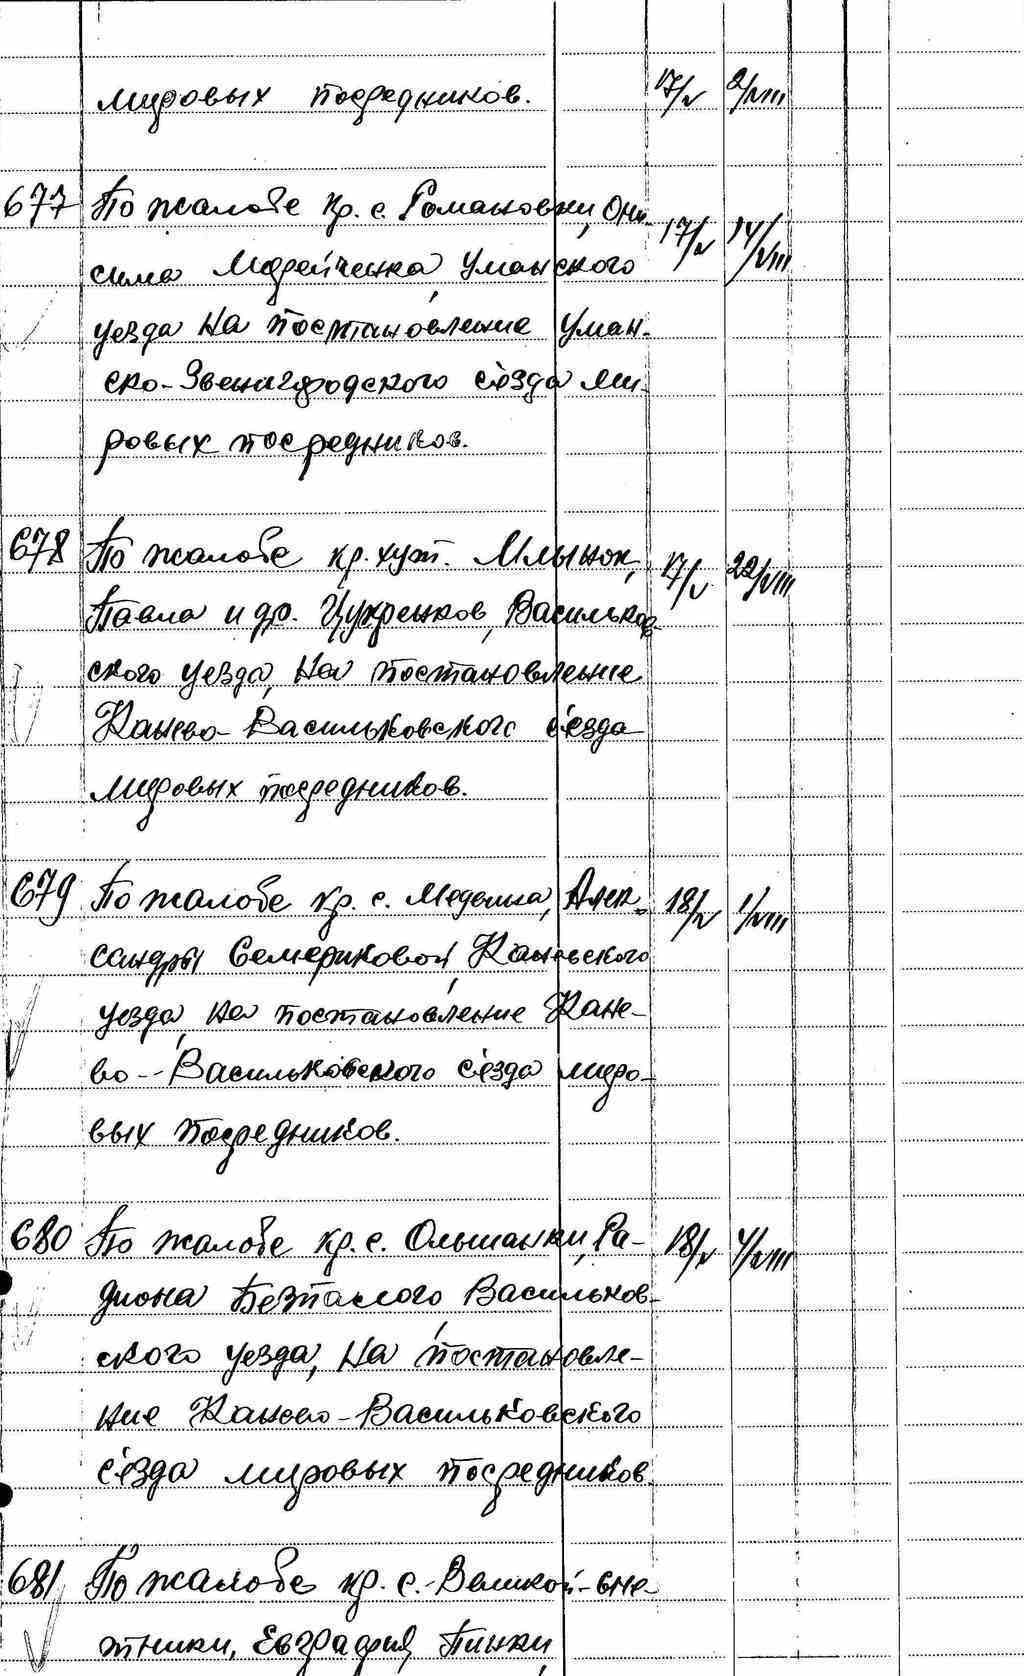 мировых посредников. 17/V 2/VIII
677 По жалобе кр. с. Романовки, Они-
сима Мдрейченка, Уманского 17/V 14/VIII
уезда на постановление Уман-
ско-Звенигородского сѐзда ми-
ровых посредников.
678 По жалобе кр. хут. Млынок, 17/V 22/VIII
Павла и др. Цухренков, Васильков-
ского уезда, на постановление
Канево-Васильковского с'езда
мировых посредников.
679 По жалобе кр. с. Медвина, Алек- 18/V 1/VIII
сандры Семериковой, Каневского
уезда, на постановление Кане-
во-Васильковского с'езда миро-
вых посредников.
680 По жалобе кр. с. Ольшанки, Ра- 18/V 4/VIII
диона Безпалого, Васильков-
ского уезда, на постановле-
ние Канево-Васильковского
с'езда мировых посредников.
681 По жалобе кр. с. Великой-Сне-
тынки, Евграфия Пинки,